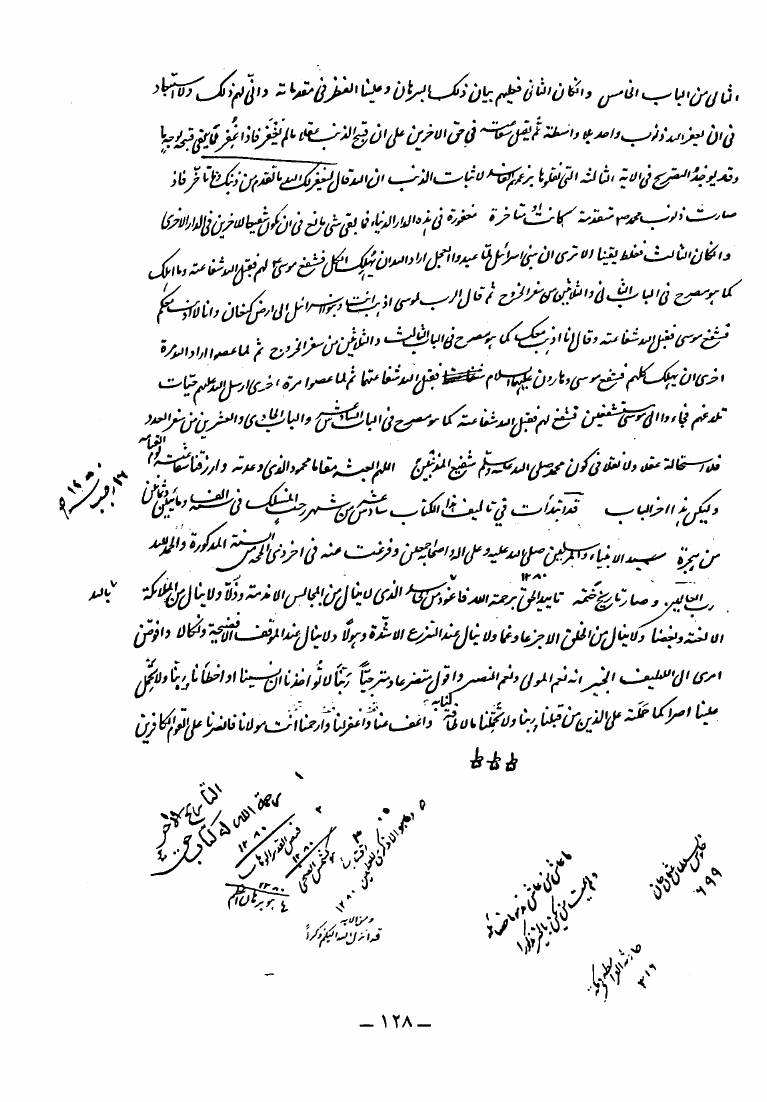 الثانى من الباب الخامس وان كان الثانى فعليهم بيان ذلك البرهان وعلينا النظر فى مقدماته وانّى لهم ذلك ولا استبعاد
فى ان يغفر الله ذنوب واحد بلا واسطة ثم يقبل شفاعته فى حق الاخرين على ان قبح الذنب عقلا ما لم يغفر فاذا غُفر فلا يبقى قبحه بوجه ما
وقد يوجد التصريح فى الاية الثالثة التى نقلوها بزعمهم لاثبات الذنب ان الله قال ليغفر لك الله ما تقدم من ذنبك وما تأخر فاذ
صارت ذنوب محمد متقدمة كانت او متاخرة مغفورة فى هذه الدار الدنيا فما بقى شى مانع فى ان يكون شفيعا للاخرين فى الدار الاخرى
وان كان الثالث فغلط يقينا الا ترى ان بنى اسرائيل لما عبدوا العجل اراد الله ان يُهلك الكل فشفع موسى لهم فقبل الله شفاعته وما اهلك
كما هو مصرح فى الباب الثانى والثلاثين من سفر الخروج ثم قال الرب لموسى اذهب انت وبنو اسرائيل الى ارض كنعان وانا لا اذهب معكم
فشفع موسى فقبل الله شفاعته وقال انا اذهب معك كما هو مصرح فى الباب الثالث والثلاثين من سفر الخروج ثم لما عصوا اراد الله مرة
اخرى ان يهلك كلهم فشفع موسى وهارون عليهما السلام فقبل الله شفاعتهما ثم لما عصوا مرة اخرى ارسل الله عليهم حيات
تلدغهم فجاءوا الى موسى مستشفعين فشفع لهم فقبل الله شفاعته كما هو مصرح فى الباب السادس عشر والباب الحادى والعشرين من سفر العدد
فلا استحالة عقلا ولا نقلا فى كون محمد صلى الله عليه وسلم شفيع المذنبين اللهم ابعثه مقاما محمودا الذى وعدته وارزقنا شفاعته يوم القيامة
وليكن هذا اخر الباب قد ابتدأت فى تاليف هذا الكتاب سادس عشر من شهر رجب المنسلك فى سنة الف ومائتين وثمانين
من هجرة سيد الانبياء والمرسلين صلى الله عليه وعلى اله واصحابه اجمعين وفرغت منه فى اخر ذى الحجة من السنة المذكورة والحمد لله
رب العالمين وصار تاريخ ختمه تاييد الحق برحمة الله ١٢٨٠ فاعوذ من الحاسد الذى لا ينال من المجالس الا ذمة وذلا ولا ينال من الملائكة
بالله
الا لعنة وبغضا ولا ينال من الخلق الا جزعا وغما ولا ينال عند النزع الا شدة وهولا ولا ينال عند الموقف الا فضيحة ونكالا وافوض
امرى الى اللطيف الخبير انه نعم المولى ونعم النصير واقول متضرعا ومترجيًا ربنا لا تؤاخذنا ان نسينا او اخطأنا ربنا ولا تحمل
علينا اصرا كما حملته على الذين من قبلنا ربنا ولا تحملنا ما لا طاقة لنا به واعف عنا واغفر لنا وارحمنا انت مولانا فانصرنا على القوم الكافرين
١
٢
١٢٨٠
٣
١٢٨٠
٤ هو برهان
١٢٨٠
قد انزل الله اليكم ذكرا
٦٩٩
٣١٦
— ١٢٨ —